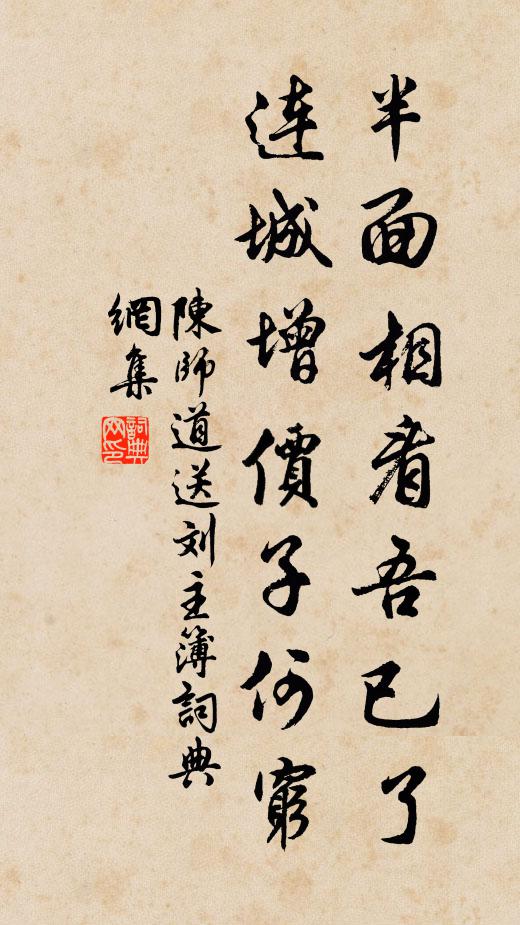 半面相看吾已了
連城增價子何窮
陳師道送刘主簿詞典
網集
詞典
网印